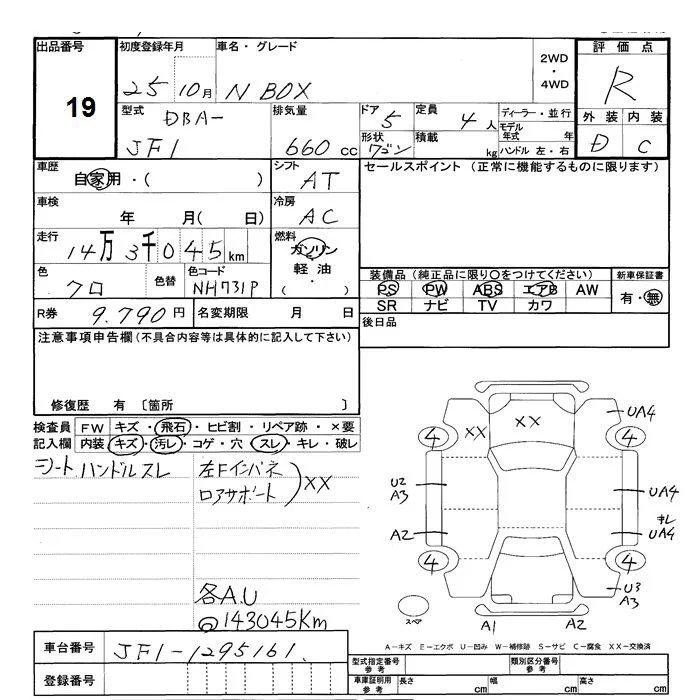 出品番号
19
初度登録年月
25 10月
車名・グレード
N BOX
2WD
・
4WD
評価点
R
型式
DBA-
JF1
排気量
660 cc
ドア
5
定員
4人
形状
ワゴン
積載
kg
ディーラー・並行
モデル年式 年
ハンドル 左・右
外装 内装
D C
車歴
自家用・( )
シフト
AT
セールスポイント (正常に機能するものに限ります)
車検
年 月( 日)
冷房
AC
走行
14万3千045km
燃料
ガソリン
軽油
・
( )
色
クロ
色替
色コード
NH731P
装備品 (純正品に限り○をつけてください)
PS PW ABS エアB AW
SR ナビ TV カワ
新車保証書
有・無
R券
9.790円
名変期限 月 日
後日品
注意事項申告欄 (不具合内容等は具体的に記入して下さい)
修復歴 有 〔箇所 〕
検査員
記入欄
FW キズ・飛石・ヒビ割・リペア跡・×要
内装 キズ・汚レ・コゲ・穴・スレ・キレ・破レ
シート ハンドルスレ
左Fインパネ
ロアサポート
XX
各A.U
143045Km
XX
XX
UA4
4
4
U2
A3
UA4
A2
キレ
UA4
4
4
U3
A3
スペア
A1
A2
A-キズ E-エクボ U-凹み W-補修跡 S-サビ C-腐食 XX-交換済
車台番号
JF1-1295161.
登録番号
型式指定番号
参考
類別区分番号
参考
車庫証明用
参考
長さ cm
幅 cm
高さ cm